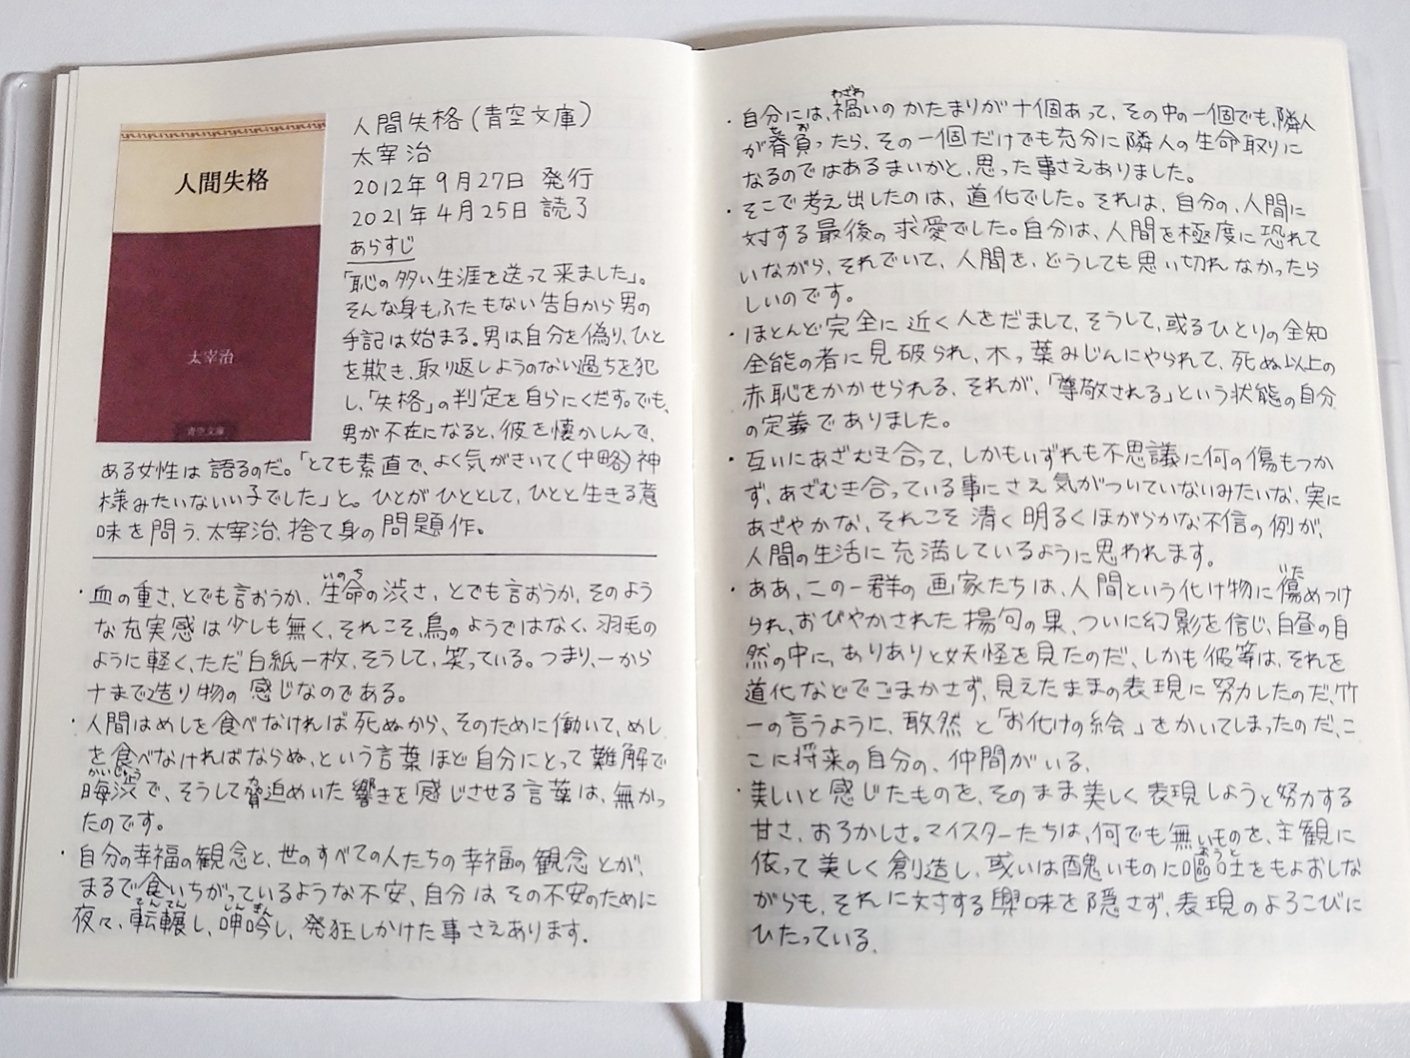 人間失格
太宰治
青空文庫
人間失格(青空文庫)
太宰治
2012年9月27日 発行
2021年4月25日 読了
あらすじ
「恥の多い生涯を送って来ました」。
そんな身もふたもない告白から男の
手記は始まる。男は自分を偽り、ひと
を欺き、取り返しようのない過ちを犯
し、「失格」の判定を自らにくだす。でも、
男が不在になると、彼を懐かしんで、
ある女性は語るのだ。「とても素直で、よく気がきいて(中略)神
様みたいないい子でした」と。ひとがひととして、ひとと生きる意
味を問う、太宰治、捨て身の問題作。
・血の重さ、とでも言おうか、生命の渋さ、とでも言おうか、そのよう
いのち
な充実感は少しも無く、それこそ、鳥のようではなく、羽毛の
ように軽く、ただ白紙一枚、そうして、笑っている。つまり、一から
十まで造り物の感じなのである。
・人間はめしを食べなければ死ぬから、そのために働いて、めし
を食べなければならぬ、という言葉ほど自分にとって難解で
かいじゅう
晦渋で、そうして脅迫めいた響きを感じさせる言葉は、無かっ
たのです。
・自分の幸福の観念と、世のすべての人たちの幸福の観念とが、
まるで食いちがっているような不安、自分はその不安のために
てんてん しんぎん
夜々、転輾し、呻吟し、発狂しかけた事さえあります。
わざわ
・自分には、禍いのかたまりが十個あって、その中の一個でも、隣人
せお
が脊負ったら、その一個だけでも充分に隣人の生命取りに
なるのではあるまいかと、思った事さえありました。
・そこで考え出したのは、道化でした。それは、自分の、人間に
対する最後の求愛でした。自分は、人間を極度に恐れて
いながら、それでいて、人間を、どうしても思い切れなかったら
しいのです。
・ほとんど完全に近く人をだまして、そうして、或るひとりの全知
全能の者に見破られ、木っ葉みじんにやられて、死ぬ以上の
赤恥をかかせられる、それが、「尊敬される」という状態の自分
の定義でありました。
・互いにあざむき合って、しかもいずれも不思議に何の傷もつか
ず、あざむき合っている事にさえ気がついていないみたいな、実に
あざやかな、それこそ清く明るくほがらかな不信の例が、
人間の生活に充満しているように思われます。
いた
・ああ、この一群の画家たちは、人間という化け物に傷めつけ
られ、おびやかされた揚句の果、ついに幻影を信じ、白昼の自
然の中に、ありありと妖怪を見たのだ、しかも彼等は、それを
道化などでごまかさず、見えたままの表現に努力したのだ、竹
一の言うように、敢然と「お化けの絵」をかいてしまったのだ、こ
こに将来の自分の、仲間がいる、
・美しいと感じたものを、そのまま美しく表現しようと努力する
甘さ、おろかしさ。マイスターたちは、何でも無いものを、主観に
おうと
依って美しく創造し、或いは醜いものに嘔吐をもよおしな
がらも、それに対する興味を隠さず、表現のよろこびに
ひたっている、